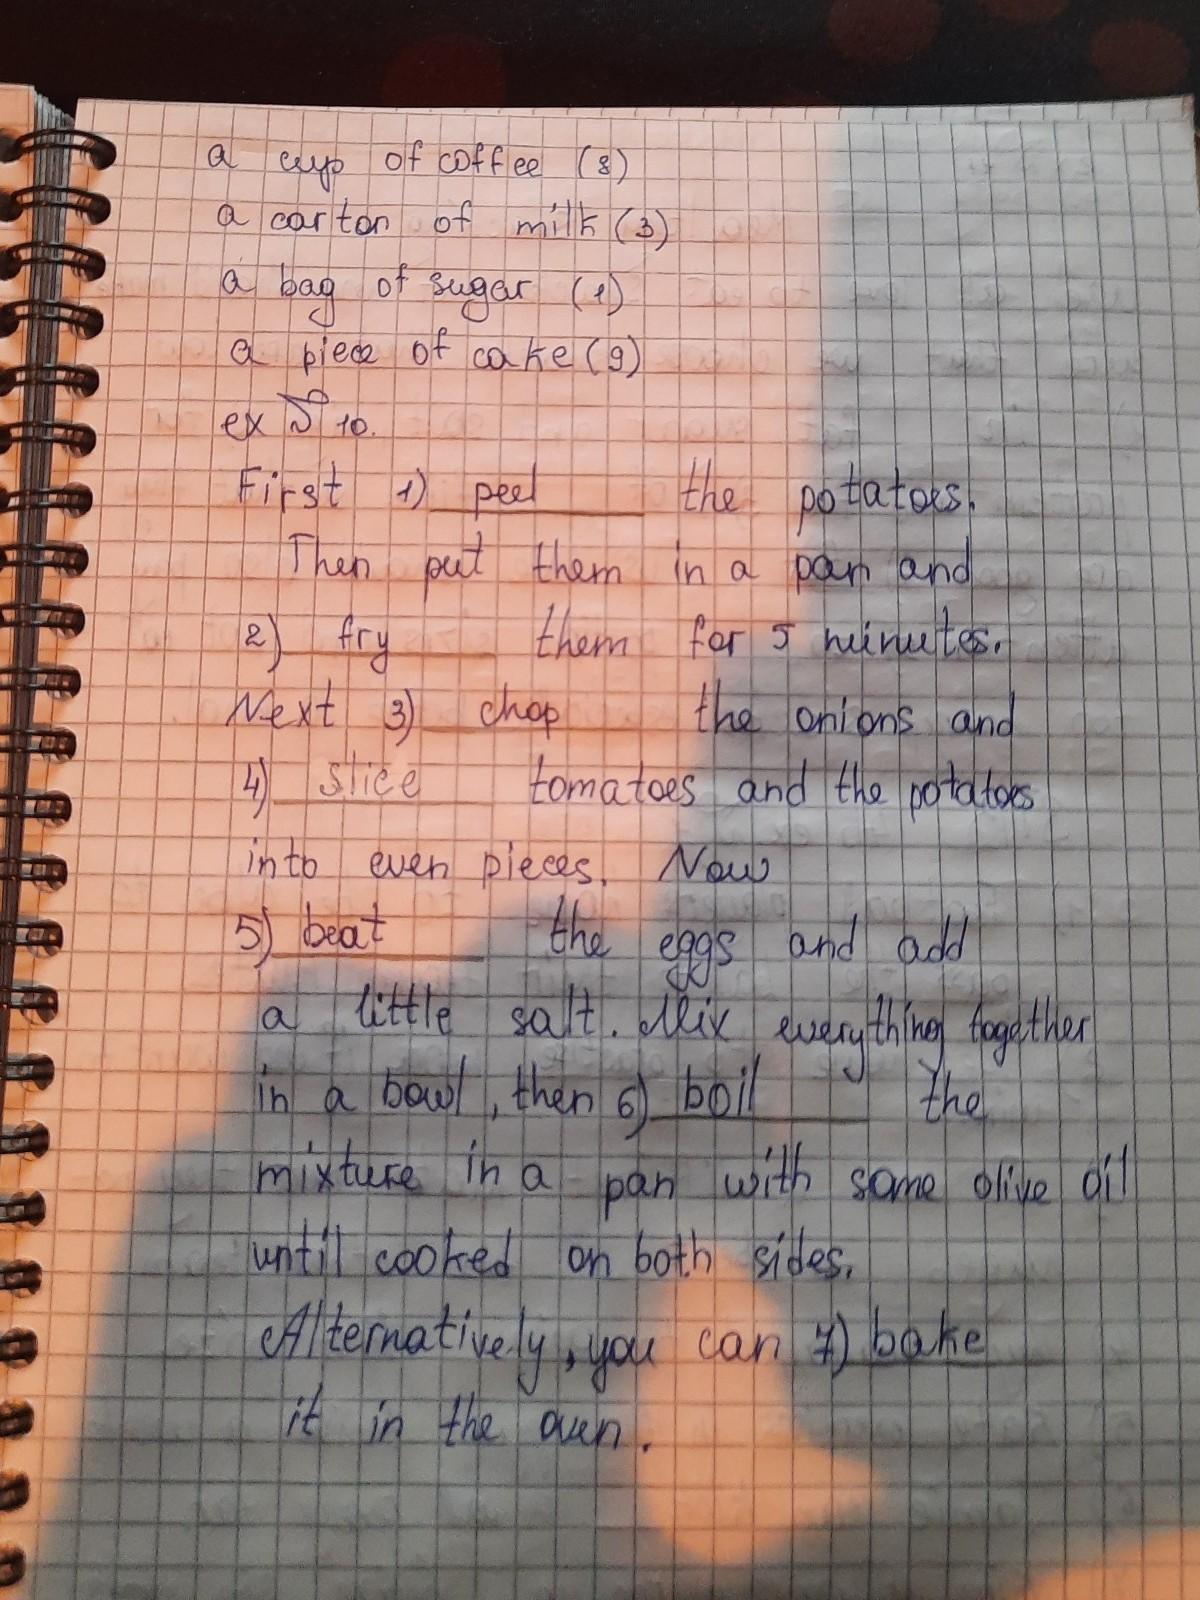 a cup of coffee (8)
a carton of milk (3)
a bag of sugar (1)
a piece of cake (9)
ex 10.
First 1) peel the potatoes.
Then put them in a pan and
2) fry them for 5 minutes.
Next 3) chop the onions and
4) slice tomatoes and the potatoes
into even pieces. Now
5) beat the eggs and add
a little salt. Mix everything together
in a bowl, then 6) boil the
mixture in a pan with some olive oil
until cooked on both sides.
Alternatively, you can 7) bake
it in the oven.